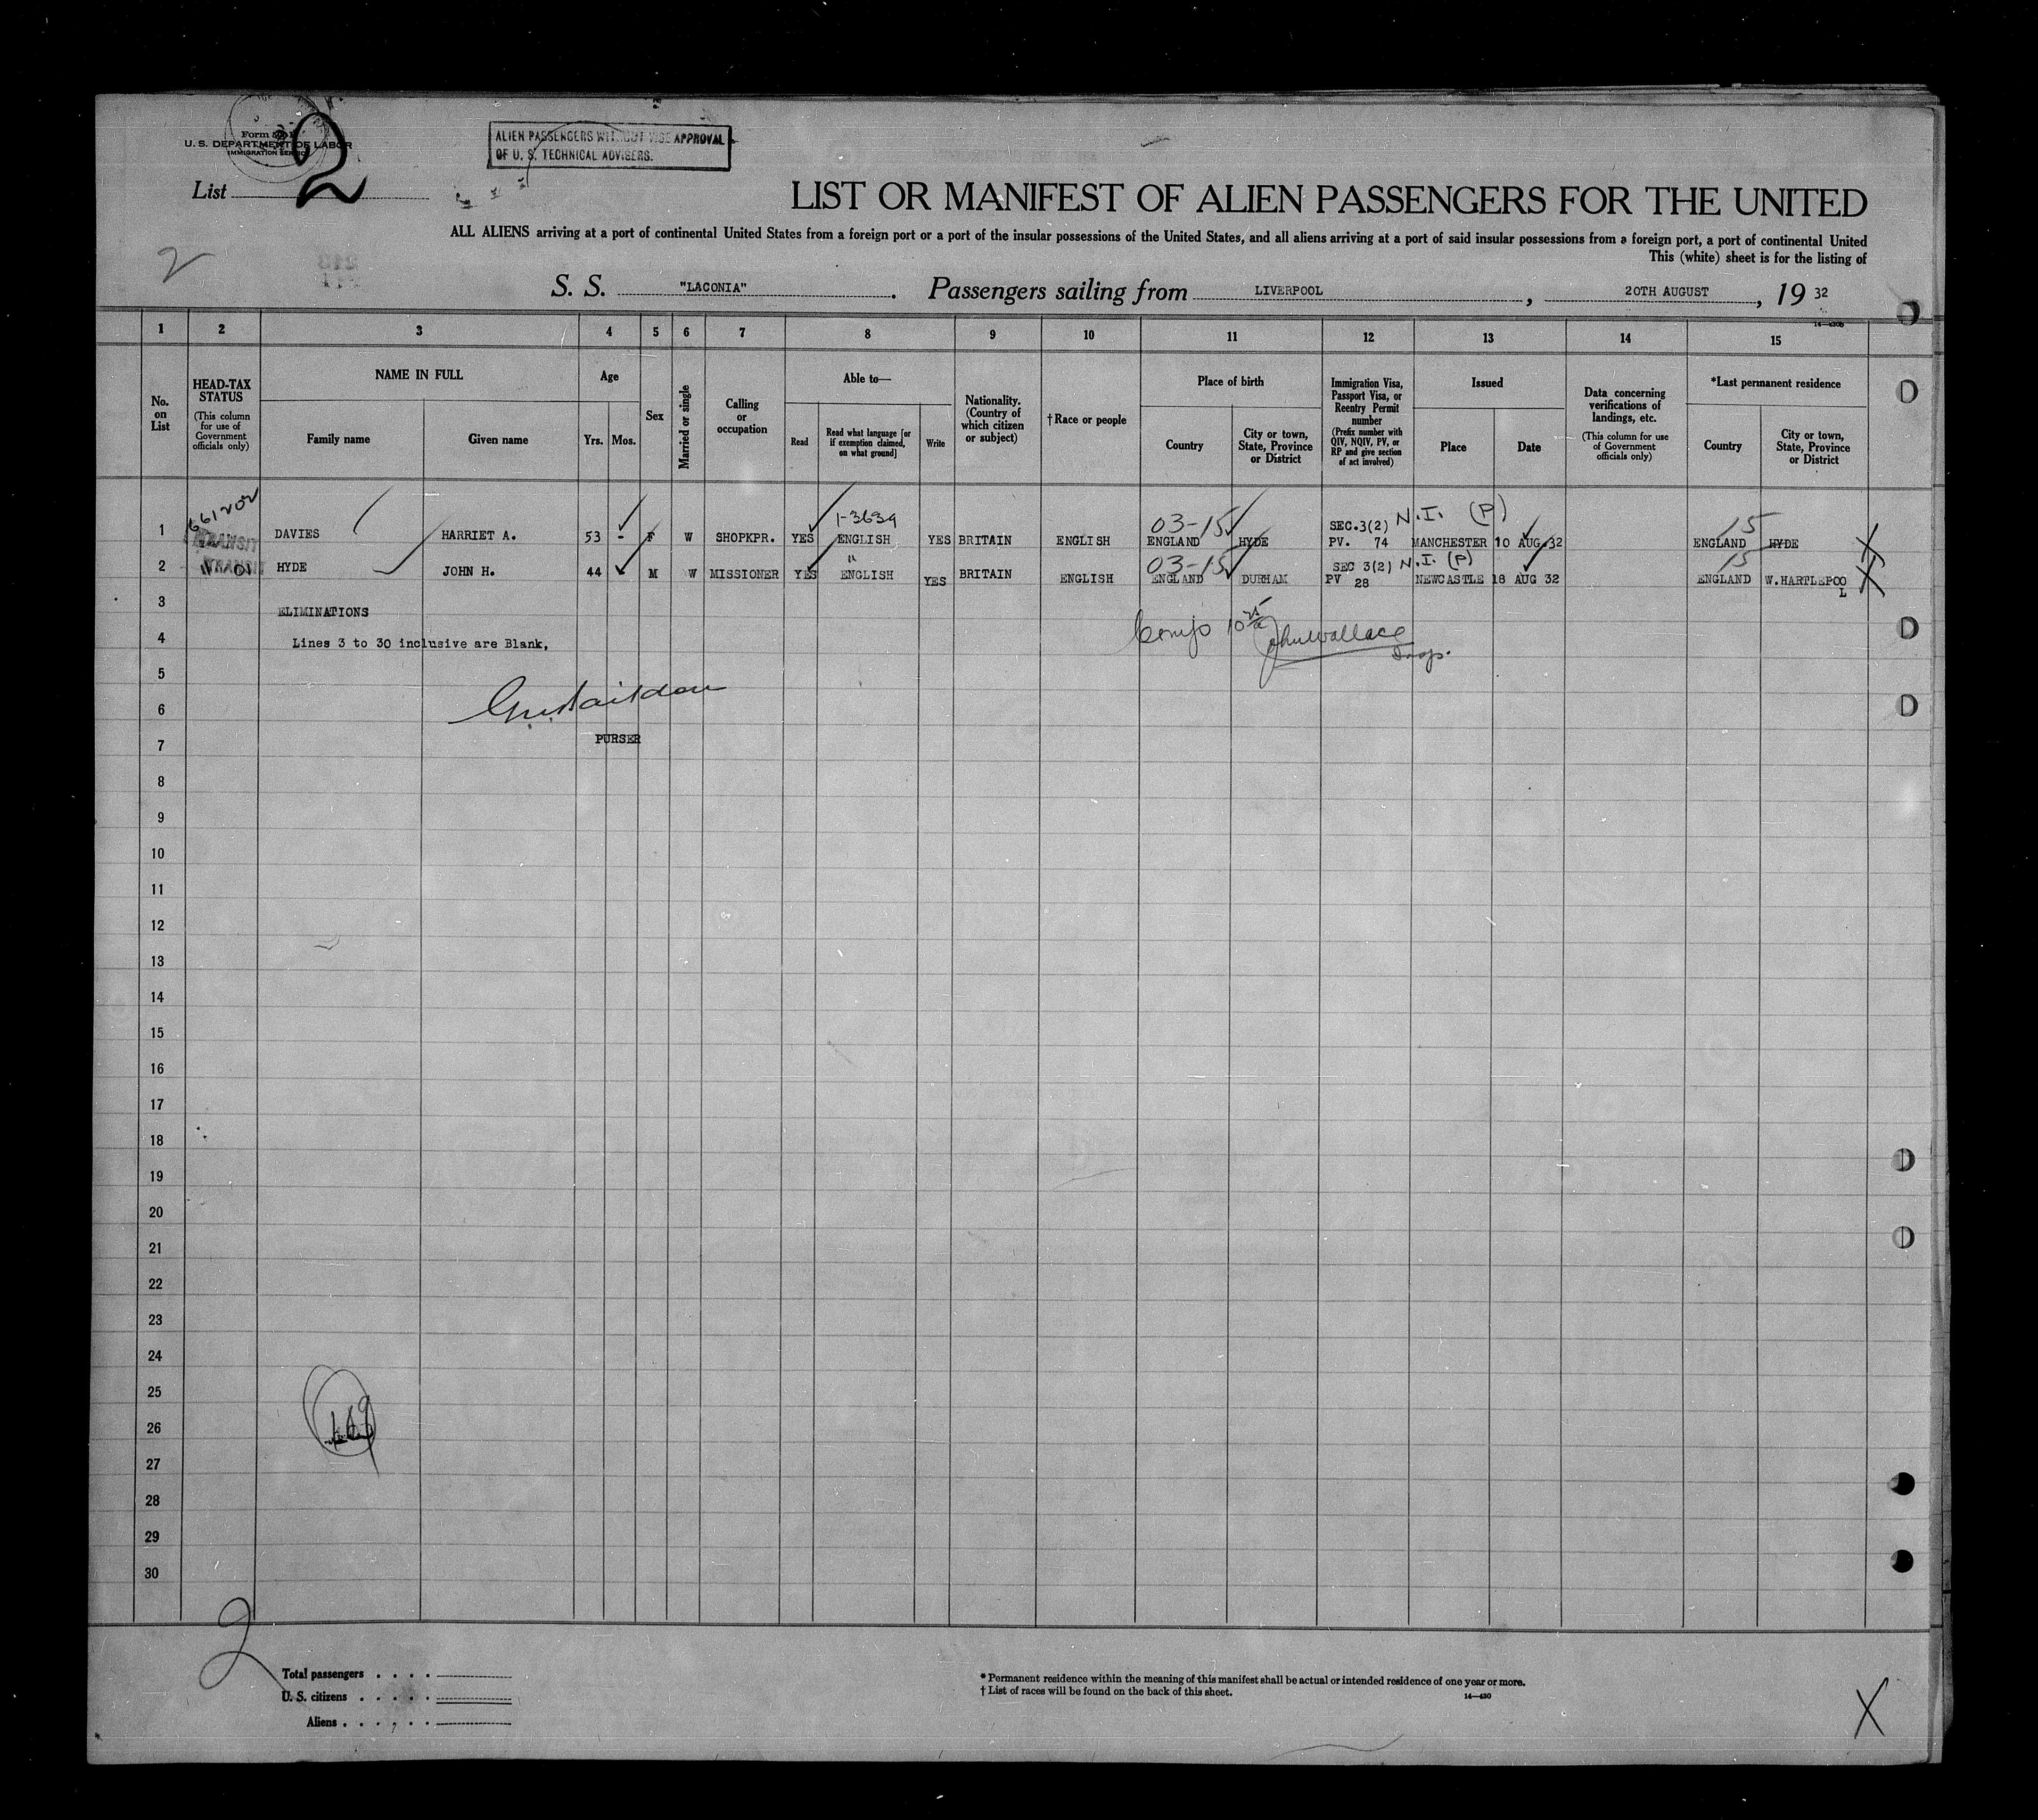 Form 500
U. S. DEPARTMENT OF LABOR
IMMIGRATION SERVICE
List 2
ALIEN PASSENGERS WITHOUT VISE APPROVAL
OF U. S. TECHNICAL ADVISERS.
LIST OR MANIFEST OF ALIEN PASSENGERS FOR THE UNITED
ALL ALIENS arriving at a port of continental United States from a foreign port or a port of the insular possessions of the United States, and all aliens arriving at a port of said insular possessions from a foreign port, a port of continental United
This (white) sheet is for the listing of
2
S. S. "LACONIA". Passengers sailing from LIVERPOOL, 20TH AUGUST, 19 32
1 2 3 4 5 6 7 8 9 10 11 12 13 14 15
No. on List
HEAD-TAX STATUS (This column for use of Government officials only)
NAME IN FULL
Family name
Given name
Age
Yrs. Mos.
Sex
Married or single
Calling or occupation
Able to—
Read
Read what language [or if exemption claimed, on what ground]
Write
Nationality. (Country of which citizen or subject)
†Race or people
Place of birth
Country
City or town, State, Province or District
Immigration Visa, Passport Visa, or Reentry Permit number (Prefix number with QIV, NQIV, PV, or RP and give section of act involved)
Issued
Place
Date
Data concerning verifications of landings, etc. (This column for use of Government officials only)
*Last permanent residence
Country
City or town, State, Province or District
661202 1-3639 03-15 SEC.3(2) N.I. (P) 15
1 TRANSIT DAVIES HARRIET A. 53 - F W SHOPKPR. YES ENGLISH YES BRITAIN ENGLISH ENGLAND HYDE PV. 74 MANCHESTER 10 AUG.32 ENGLAND HYDE
" 03-15 SEC 3(2) N.I. (P) 15
2 TRANSIT HYDE JOHN H. 44 - M W MISSIONER YES ENGLISH YES BRITAIN ENGLISH ENGLAND DURHAM PV 28 NEWCASTLE 18 AUG 32 ENGLAND W.HARTLEPOOL
3 ELIMINATIONS
4 Lines 3 to 30 inclusive are Blank,
John Wallace
Insp.
5
6
7 PURSER
8
9
10
11
12
13
14
15
16
17
18
19
20
21
22
23
24
25
26
27
28
29
30
2
Total passengers . . . .
U. S. citizens . . . . .
Aliens . . . . . .
* Permanent residence within the meaning of this manifest shall be actual or intended residence of one year or more.
† List of races will be found on the back of this sheet.
14—430
X